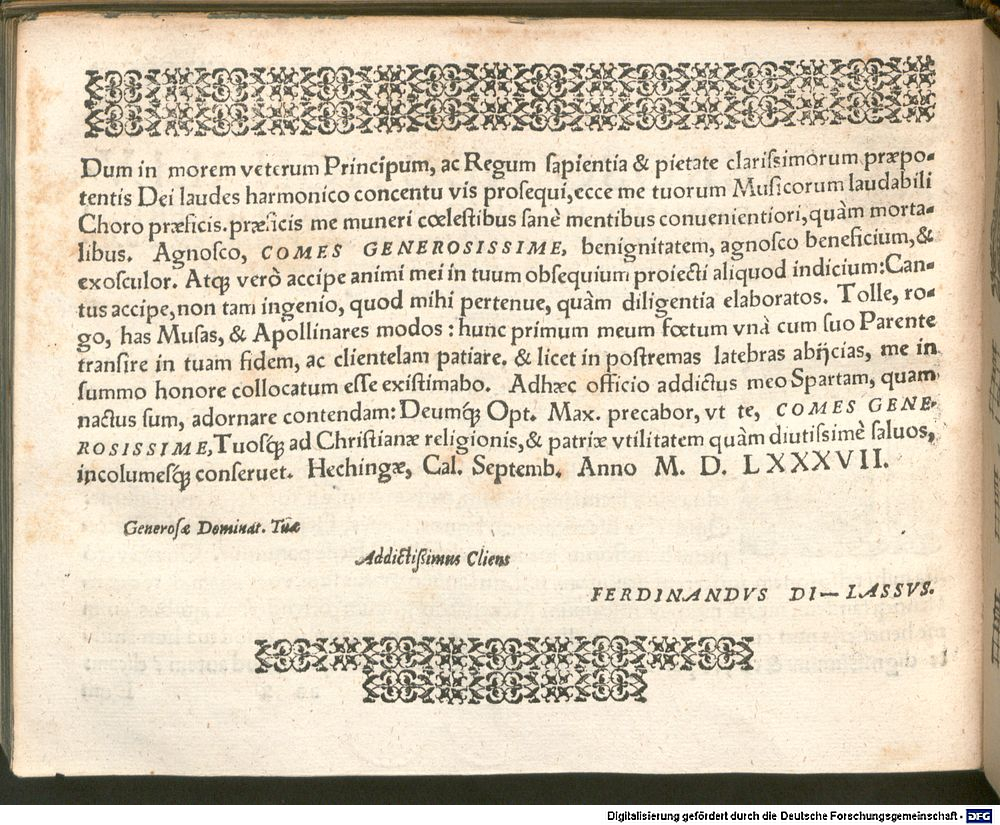 Dum in morem veterum Principum, ac Regum ſapientia & pietate clariſsimorum præpo-
tentis Dei laudes harmonico concentu vis proſequi, ecce me tuorum Muſicorum laudabili
Choro præficis. præficis me muneri cœleſtibus ſanè mentibus conuenientiori, quàm morta-
libus. Agnoſco, COMES GENEROSISSIME, benignitatem, agnoſco beneficium, &
exoſculor. Atq; verò accipe animi mei in tuum obſequium proiecti aliquod indicium: Can-
tus accipe, non tam ingenio, quod mihi pertenue, quàm diligentia elaboratos. Tolle, ro-
go, has Muſas, & Apollinares modos: hunc primum meum fœtum vnà cum ſuo Parente
tranſire in tuam fidem, ac clientelam patiare. & licet in poſtremas latebras abijcias, me in
ſummo honore collocatum eſſe exiſtimabo. Adhæc officio addictus meo Spartam, quam
nactus ſum, adornare contendam: Deumq́; Opt. Max. precabor, vt te, COMES GENE-
ROSISSIME, Tuoſq́; ad Chriſtianæ religionis, & patriæ vtilitatem quàm diutiſsimè ſaluos,
incolumeſq́; conſeruet. Hechingæ, Cal. Septemb. Anno M. D. LXXXVII.
Generoſæ Dominat. Tuæ
Addictiſsimus Cliens
FERDINANDVS DI— LASSVS.
Digitalisierung gefördert durch die Deutsche Forschungsgemeinschaft - DFG